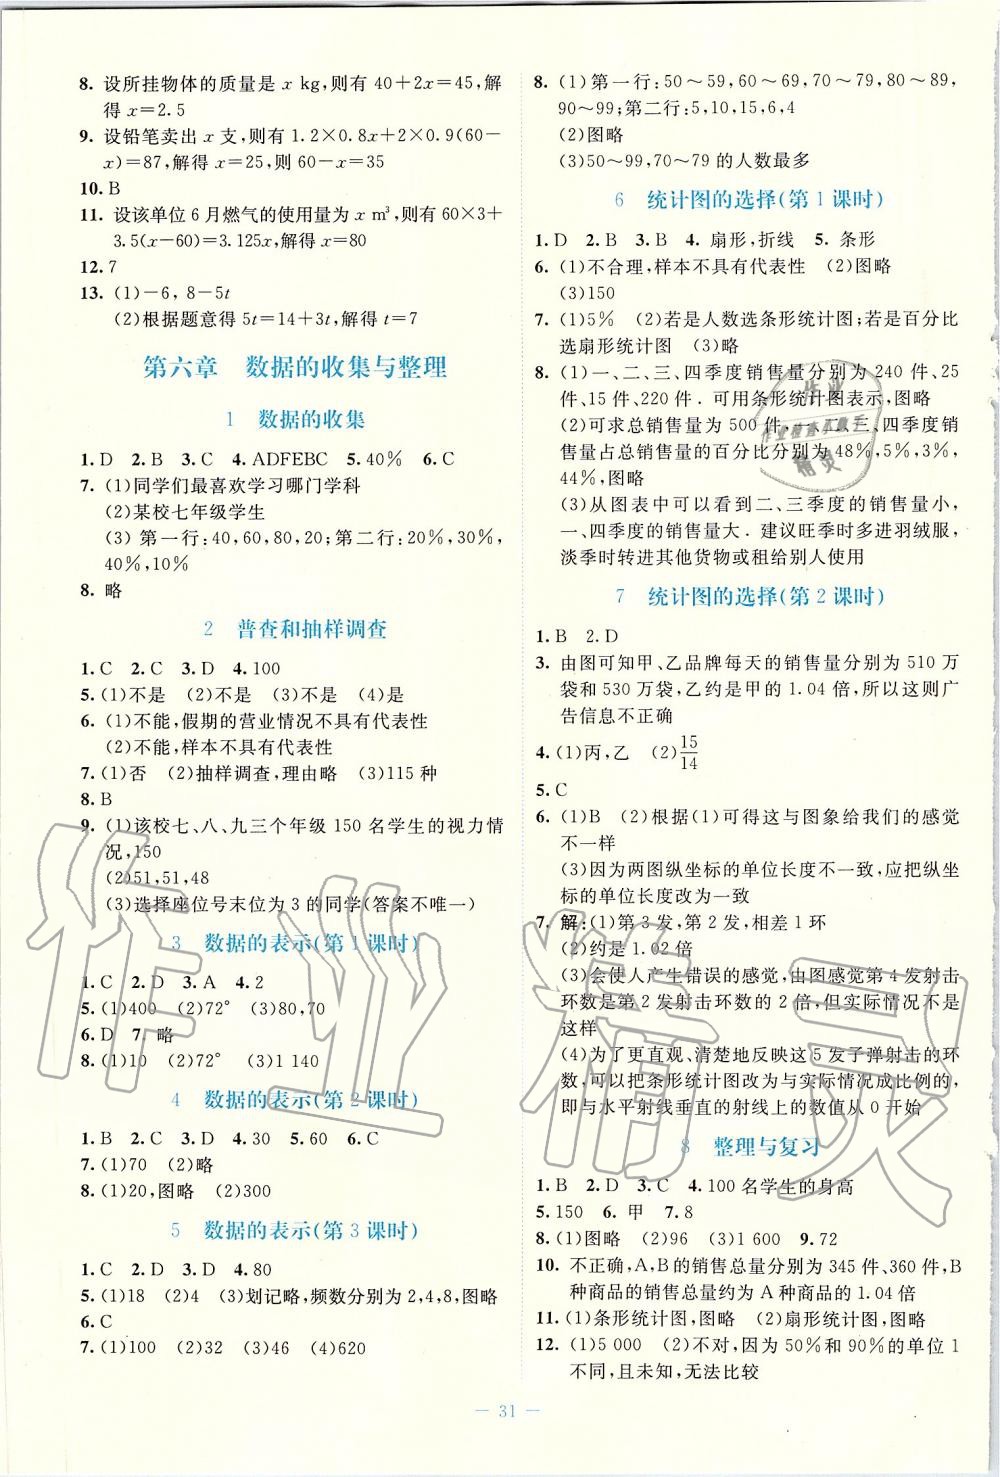 8. 设所挂物体的质量是 x kg,则有 40+2x=45,解
得 x=2.5
9. 设铅笔卖出 x 支,则有 1.2×0.8x+2×0.9(60-
x)=87,解得 x=25,则 60-x=35
10. B
11. 设该单位 6 月燃气的使用量为 x m³,则有 60×3+
3.5(x-60)=3.125x,解得 x=80
12. 7
13. (1)-6, 8-5t
(2)根据题意得 5t=14+3t,解得 t=7
第六章 数据的收集与整理
1 数据的收集
1. D 2. B 3. C 4. ADFEBC 5. 40% 6. C
7. (1)同学们最喜欢学习哪门学科
(2)某校七年级学生
(3) 第一行:40,60,80,20;第二行:20%,30%,
40%,10%
8. 略
2 普查和抽样调查
1. C 2. C 3. D 4. 100
5. (1)不是 (2)不是 (3)不是 (4)是
6. (1)不能,假期的营业情况不具有代表性
(2)不能,样本不具有代表性
7. (1)否 (2)抽样调查,理由略 (3)115 种
8. B
9. (1)该校七、八、九三个年级 150 名学生的视力情
况,150
(2)51,51,48
(3)选择座位号末位为 3 的同学(答案不唯一)
3 数据的表示(第 1 课时)
1. C 2. D 3. A 4. 2
5. (1)400 (2)72° (3)80,70
6. D 7. 略
8. (1)10 (2)72° (3)1 140
4 数据的表示(第 2 课时)
1. B 2. C 3. D 4. 30 5. 60 6. C
7. (1)70 (2)略
8. (1)20,图略 (2)300
5 数据的表示(第 3 课时)
1. C 2. D 3. D 4. 80
5. (1)18 (2)4 (3)划记略,频数分别为 2,4,8,图略
6. C
7. (1)100 (2)32 (3)46 (4)620
8. (1)第一行:50～59,60～69,70～79,80～89,
90～99;第二行:5,10,15,6,4
(2)图略
(3)50～99,70～79 的人数最多
6 统计图的选择(第 1 课时)
1. D 2. B 3. B 4. 扇形,折线 5. 条形
6. (1)不合理,样本不具有代表性 (2)图略
(3)150
7. (1)5% (2)若是人数选条形统计图;若是百分比
选扇形统计图 (3)略
8. (1)一、二、三、四季度销售量分别为 240 件、25
件、15 件、220 件. 可用条形统计图表示,图略
(2)可求总销售量为 500 件,一、二、三、四季度销
售量占总销售量的百分比分别为 48%,5%,3%,
44%,图略
(3)从图表中可以看到二、三季度的销售量小,
一、四季度的销售量大. 建议旺季时多进羽绒服,
淡季时转进其他货物或租给别人使用
7 统计图的选择(第 2 课时)
1. B 2. D
3. 由图可知甲、乙品牌每天的销售量分别为 510 万
袋和 530 万袋,乙约是甲的 1.04 倍,所以这则广
告信息不正确
4. (1)丙,乙 (2)15/14
5. C
6. (1)B (2)根据(1)可得这与图象给我们的感觉
不一样
(3)因为两图纵坐标的单位长度不一致,应把纵坐
标的单位长度改为一致
7. 解:(1)第 3 发,第 2 发,相差 1 环
(2)约是 1.02 倍
(3)会使人产生错误的感觉,由图感觉第 4 发射击
环数是第 2 发射击环数的 2 倍,但实际情况不是
这样
(4)为了更直观、清楚地反映这 5 发子弹射击的环
数,可以把条形统计图改为与实际情况成比例的,
即与水平射线垂直的射线上的数值从 0 开始
8 整理与复习
1. B 2. D 3. C 4. 100 名学生的身高
5. 150 6. 甲 7. 8
8. (1)图略 (2)96 (3)1 600 9. 72
10. 不正确,A,B 的销售总量分别为 345 件、360 件,B
种商品的销售总量约为 A 种商品的 1.04 倍
11. (1)条形统计图,图略 (2)扇形统计图,图略
12. (1)5 000 (2)不对,因为 50%和 90%的单位 1
不同,且未知,无法比较
— 31 —
作业精灵